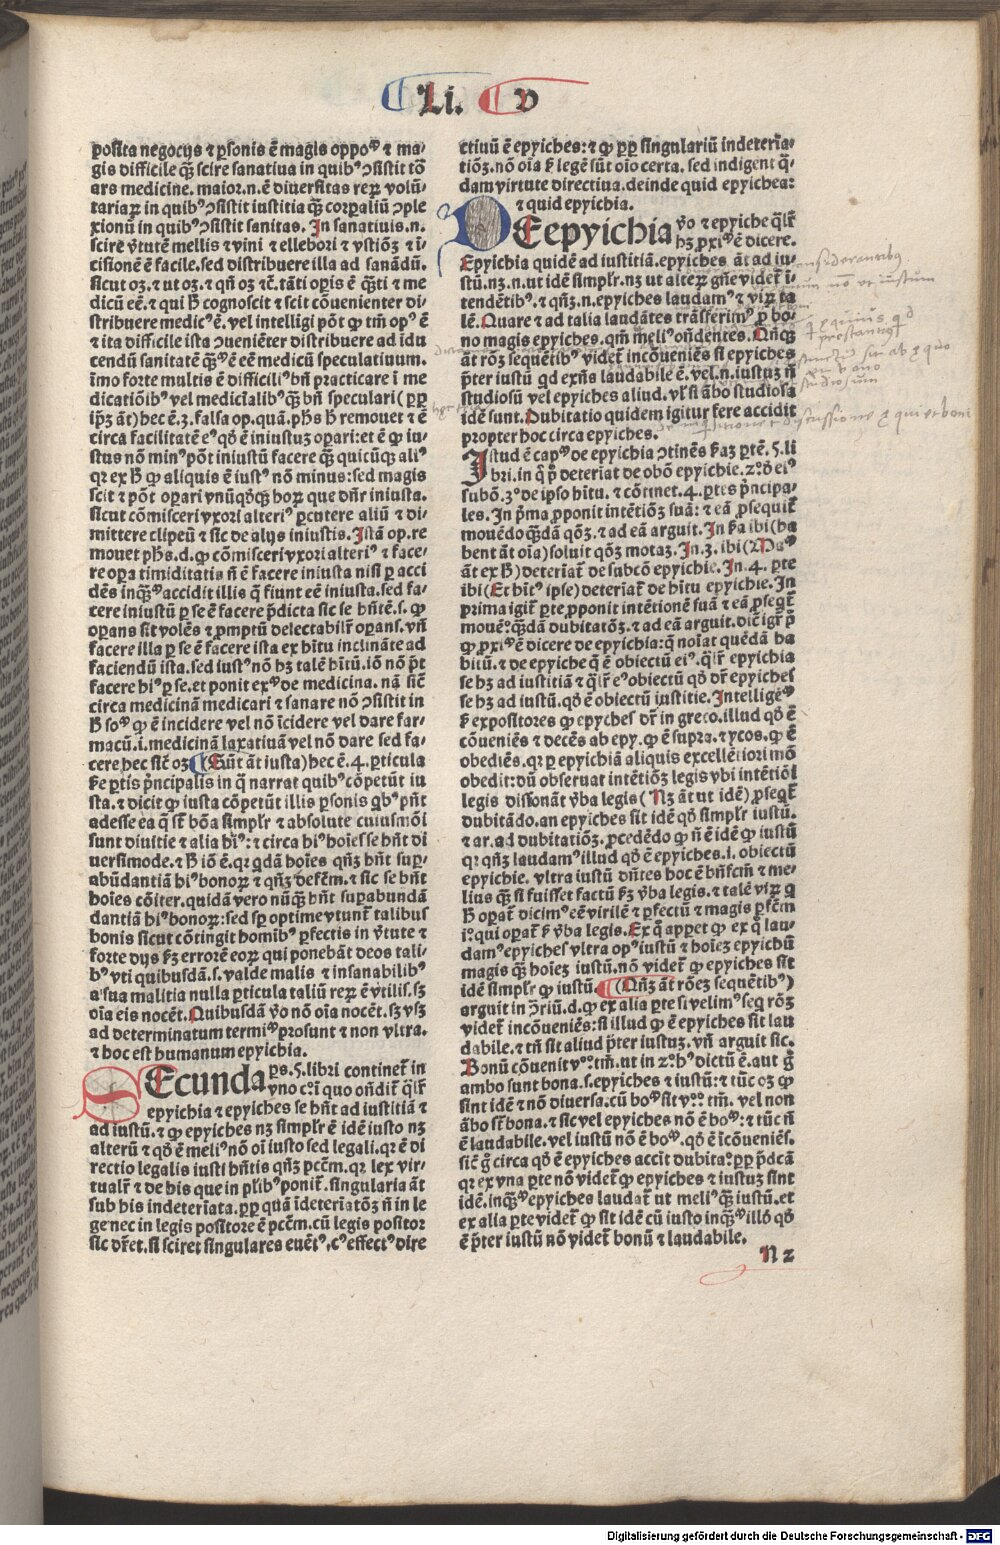 Li. v
posita negocijs ⁊ ꝑsonis ē magis oppoᵐ ⁊ ma⸗
gis difficile q̃ꝫ scire sanatiua in quibꝰ ↄsistit tō
ars medicine. maior.n.ē diuersitas reꝝ volū⸗
tariaꝝ in quibꝰ ↄsistit iustitia q̃ꝫ corꝑaliū ↄple
xionū in quibꝰ ↄsistit sanitas. In sanatiuis.n.
scire v̄tutē mellis ⁊ vini ⁊ ellebori ⁊ vstiōꝫ ⁊ ī
cisionē ē facile. sed distribuere illa ad sanādū.
sicut oꝫ. ⁊ ut oꝫ. ⁊ qñ oꝫ ⁊c̄. tāti oꝑis ē q̃ti ⁊ me
dicū eē. ⁊ qui ħ cognoscit ⁊ scit cōuenienter di⸗
stribuere medicꝰ ē. vel intelligi pōt ꝙ tm̄ opꝰ ē
⁊ ita difficile ista ↄueniēter distribuere ad īdu
cendū sanitatē q̃ꝫᵐ ē eē medicū speculatiuum.
īmo forte multis ē difficiliꝰ bñ practicare ī me
dicatiōibꝰ vel medicīalibꝰ q̃ꝫ bñ speculari( ꝓp
ip̄ꝫ āt) hec ē.3. falsa op. quā. ph̄s ħ remouet ⁊ ē
circa facilitatē eꝰ qd̄ ē iniustuꝫ oꝑari: et ē ꝙ iu⸗
stus nō minꝰ pōt iniustū facere q̃ꝫ quicūqꝫ aliꝰ
qꝛ ex ħ ꝙ aliquis ē iustꝰ nō minus: sed magis
scit ⁊ pōt oꝑari vnūqd̄qꝫ hoꝝ que dñr iniusta.
sicut cōmisceri vxori alteriꝰ ꝑcutere aliū ⁊ di⸗
mittere clipeū ⁊ sic de alijs iniustis. Istā op. re
mouet ph̄s.d. ꝙ cōmisceri vxori alteriꝰ ⁊ face⸗
re oꝑa timiditatis ñ ē facere iniusta nisi ꝑ acci
dēs inq̃ꝫᵐ accidit illis q̄ fiunt eē iniusta. sed fa⸗
cere iniustū ꝑ se ē facere p̄dicta sic se hñtē.s. ꝙ
oꝑans sit volēs ⁊ ꝓmptū delectabilr̄ oꝑans. vñ
facere illa ꝑ se ē facere ista ex hītu inclināte ad
faciendū ista. sed iustꝰ nō hꝫ talē hītū. iō nō p̄t
facere hiꝰ ꝑ se. et ponit exᵐ de medicina. nā sic̄
circa medicinā medicari ⁊ sanare nō ↄsistit in
ħ soᵐ ꝙ ē incidere vel nō īcidere vel dare far⸗
macū.i. medicinā laxatiuā vel nō dare sed fa⸗
cere hec sic̄ oꝫ (Sūt āt iusta) hec ē.4. ꝑticula
ħe ꝑtis p̄ncipalis in q̄ narrat quibꝰ cōpetūt iu
sta. ⁊ dicit ꝙ iusta cōpetūt illis ꝑsonis qbꝰ pñt
adesse ea q̄ st̄ bōa simplr̄ ⁊ absolute cuiusmōi
sunt diuitie ⁊ alia hꝰ: ⁊ circa hꝰ hoīes se hñt di
uersimode. ⁊ ħ iō ē. qꝛ qdā hoīes qñqꝫ hñt suꝑ⸗
abūdantiā hiꝰ bonoꝝ ⁊ qñqꝫ defc̄m. ⁊ sic se hñt
hoīes cōiter. quidā vero nūq̃ꝫ hñt suꝑabundā
dantiā hiꝰ bonoꝝ: sed sꝑ optime vtunt̄ talibus
bonis sicut cōtingit homibꝰ ꝑfectis in v̄tute ⁊
forte dijs ẜꝫ errorē eoꝝ qui ponebāt deos tali⸗
bꝰ vti quibusdā.s. valde malis ⁊ insanabilibꝰ
a sua malitia nulla ꝑticula taliū reꝝ ē vtilis. sꝫ
oīa eis nocēt. Quibusdā v̄o nō oīa nocēt. sꝫ vsqꝫ
ad determinatum termīꝰ prosunt ⁊ non vltra.
⁊ hoc est humanum epyichia.
SEcunda ꝑs.5. libri continet̄ in
vno c°: ī quo oñdit̄ q̄lr̄
epyichia ⁊ epyiches se hñt ad iustitiā ⁊
ad iustū. ⁊ ꝙ epyiches nꝫ simplr̄ ē idē iusto nꝫ
alterū ⁊ qd̄ ē meliꝰ nō oī iusto sed legali. qꝛ ē di
rectio legalis iusti hñtis qñqꝫ pc̄tm. qꝛ lex vir⸗
tualr̄ ⁊ de his que in pl̄ibꝰ ponit̄. singularia āt
sub his indeterīata. ꝓp quā īdeterīatōꝫ ñ in le
ge nec in legis positore ē pc̄tm. cū legis positor
sic dr̄et. si sciret singulares euētꝰ. cꝰ effectꝰ dire
ctiuū ē epyiches: ⁊ ꝙ ꝓp singulariū indeterīa⸗
tiōꝫ. nō oīa ẜ legē sūt oīo certa. sed indigent q̄⸗
dam virtute directiua. deinde quid epyichea:
⁊ quid epyichia.
DEepyichia v̄o ⁊ epyiche q̄lr̄
hꝫ ꝓxīᵐ ē dicere.
Epyichia quidē ad iustitiā. epyiches āt ad iu⸗
stū. nꝫ.n. ut idē simplr̄. nꝫ ut alteꝝ gñe videt̄ ī⸗
tendētibꝰ. ⁊ qñqꝫ.n. epyiches laudamꝰ ⁊ viꝝ ta
lē. Quare ⁊ ad talia laudātes trāsferimꝰ ꝓ bo⸗
no magis epyiches. qm̄ meliꝰ oñdentes. Qñqꝫ
āt rōꝫ sequētibꝰ videt̄ incōueniēs si epyiches
p̄ter iustū qd exñs laudabile ē. vel.n. iustuꝫ ñ
studiosū vel epyiches aliud. vl̄ si ābo studiosa
idē sunt. Dubitatio quidem igitur fere accidit
propter hoc circa epyiches.
Istud ē capᵐ de epyichia ↄtinēs ẜaꝫ ꝑtē. 5. li
bri. in q̄ p̄° deteriat de obō epyichie. 2° d̄ eiꝰ
subō. 3° de ipso hītu. ⁊ cōtinet.4. ꝑtes p̄ncipa⸗
les. In p̄ma ꝓponit intētiōꝫ suā: ⁊ eā ꝓsequit̄
mouēdo q̃ꝫdā qōꝫ. ⁊ ad eā arguit. In ẜa ibi (ha
bent āt oīa) soluit qōꝫ motaꝫ. In.3. ibi (Maᵐ
āt ex ħ) deteriat̄ de subcō epyichie. In.4. ꝑte
ibi (Et hītꝰ ipse) deteriat̄ de hītu epyichie. In
prima igit̄ ꝑte ꝓponit intētionē suā ⁊ eā ꝓseqt̄
mouēꝰ q̃ꝫdā dubitatōꝫ. ⁊ ad eā arguit. dic̄ igr̄ p̄°
ꝙ ꝓxīᵐ ē dicere de epyichia: q̄ noīat quēdā ha
bitū. ⁊ de epyiche q̄ ē obiectū eiꝰ. q̄lr̄ epyichia
se hꝫ ad iustitiā ⁊ q̄lr̄ eꝰ obiectū qd̄ dr̄ epyiches
se hꝫ ad iustū. qd̄ ē obiectū iustitie. Intelligēᵐ
ẜ expositores ꝙ epyches dr̄ in greco. illud qd̄ ē
cōueniēs ⁊ decēs ab epy. ꝙ ē supra. ⁊ ycos. ꝙ ē
obediēs. qꝛ ꝑ epyichiā aliquis excellētiori mō
obedit: dū obseruat intētiōꝫ legis vbi intētiōi
legis dissonāt v̄ba legis ( Nꝫ āt ut idē) ꝓseqt̄
dubitādo. an epyiches sit idē qd̄ simplr̄ iustū.
⁊ ar. ad dubitatiōꝫ. ꝓcedēdo ꝙ ñ ē idē ꝙ iustū
qꝛ qñqꝫ laudamꝰ illud qd̄ ē epyiches.i. obiectū
epyichie. vltra iustū dñtes hoc ē bñfcm̄ ⁊ me⸗
lius q̃ꝫ si fuisset factū ẜꝫ v̄ba legis. ⁊ talē viꝝ q
ħ oꝑat̄ dicimꝰ eē virilē ⁊ ꝑfectū ⁊ magis ꝑfcm̄
i°: qui oꝑat̄ ẜ v̄ba legis. Ex q̄ apꝑet ꝙ ex q̄ lau⸗
damꝰ epyiches vltra opꝰ iustū ⁊ hoīeꝫ epyichū
magis q̃ꝫ hoīeꝫ iustū. nō videt̄ ꝙ epyiches sit
idē simplr̄ ꝙ iustū. (Qñqꝫ āt rōeꝫ sequētibꝰ)
arguit in ↄ̄riū.d. ꝙ ex alia ꝑte si velimꝰ seq rōꝫ
videt̄ incōueniēs: si illud ꝙ ē epyiches sit lau
dabile. ⁊ tñ sit aliud p̄ter iustuꝫ. vñ arguit sic.
Bonū cōuenit v°: tm̄. ut in 2° hꝰ dictū ē. aut g̊
ambo sunt bona.s. epyiches ⁊ iustū: ⁊ tūc oꝫ ꝙ
sint idē ⁊ nō diuersa. cū boᵐ sit v°: tm̄. vel non
ābo st̄ bona. ⁊ sic vel epyiches nō ē boᵐ: ⁊ tūc ñ
ē laudabile. vel iustū nō ē boᵐ. qd̄ ē īcōueniēs.
sic̄ g̊ circa qd̄ ē epyiches accīt dubita°: ꝓp p̄dcā
qꝛ ex vna ꝑte nō videt̄ ꝙ epyiches ⁊ iustuꝫ sint
idē. inq̃ꝫᵐ epyiches laudat̄ ut meliꝰ q̃ꝫ iustū. et
ex alia ꝑte videt̄ ꝙ sit idē cū iusto inq̃ꝫᵐ illd̄ qd̄
ē p̄ter iustū nō videt̄ bonū ⁊ laudabile.
N 2
Digitalisierung gefördert durch die Deutsche Forschungsgemeinschaft - DFG